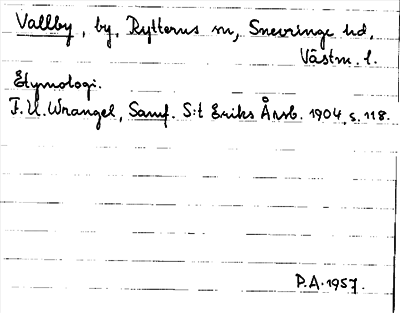 Vallby, by, Rytterns sn, Snevringe hd,
Västm. l.
Etymologi.
F.U. Wrangel, Samf. S:t Eriks Årsb. 1904, s. 118.
P.A. 1957.